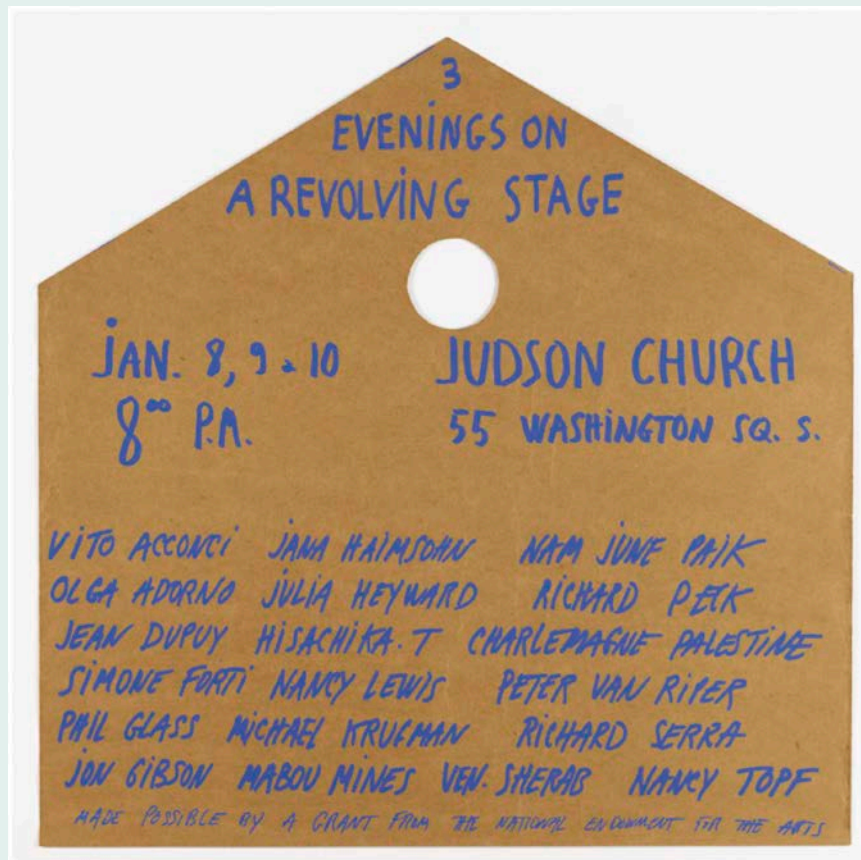 3
EVENiNGS ON
A REVOLViNG STAGE
jAN. 8, 9 & 10
8⁰⁰ P.M.
JUDSON CHURCH
55 WASHiNGTON SQ. S.
ViTO ACCONCi jANA HAiMSOHN NAM JUNE PAiK
OLGA ADORNO jULiA HEYWARD RiCHARD PECK
JEAN DUPUY HiSACHiKA.T CHARLEMAGNE PALESTiNE
SiMONE FORTi NANCY LEWiS PETER VAN RiPER
PHiL GLASS MiCHAEL KRUGMAN RiCHARD SERRA
JON GiBSON MABOU MiNES VEN. SHERAB NANCY TOPF
MADE POSSiBLE BY A GRANT FROM THE NATiONAL ENDOWMENT FOR THE ARTS